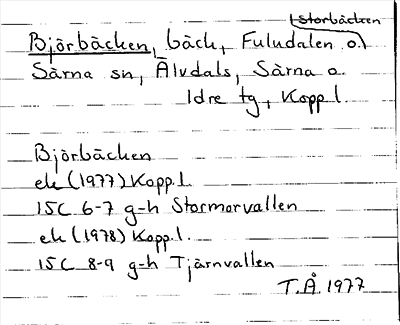 Storbäcken
Björbäcken, bäck, Fuludalen o.
Särna sn, Älvdals, Särna o.
Idre tg, Kopp l.
Björbäcken
ek (1977) Kopp.l.
15C 6-7 g-h Stormorvallen
ek (1978) Kopp.l.
15C 8-9 g-h Tjärnvallen
T.Å 1977